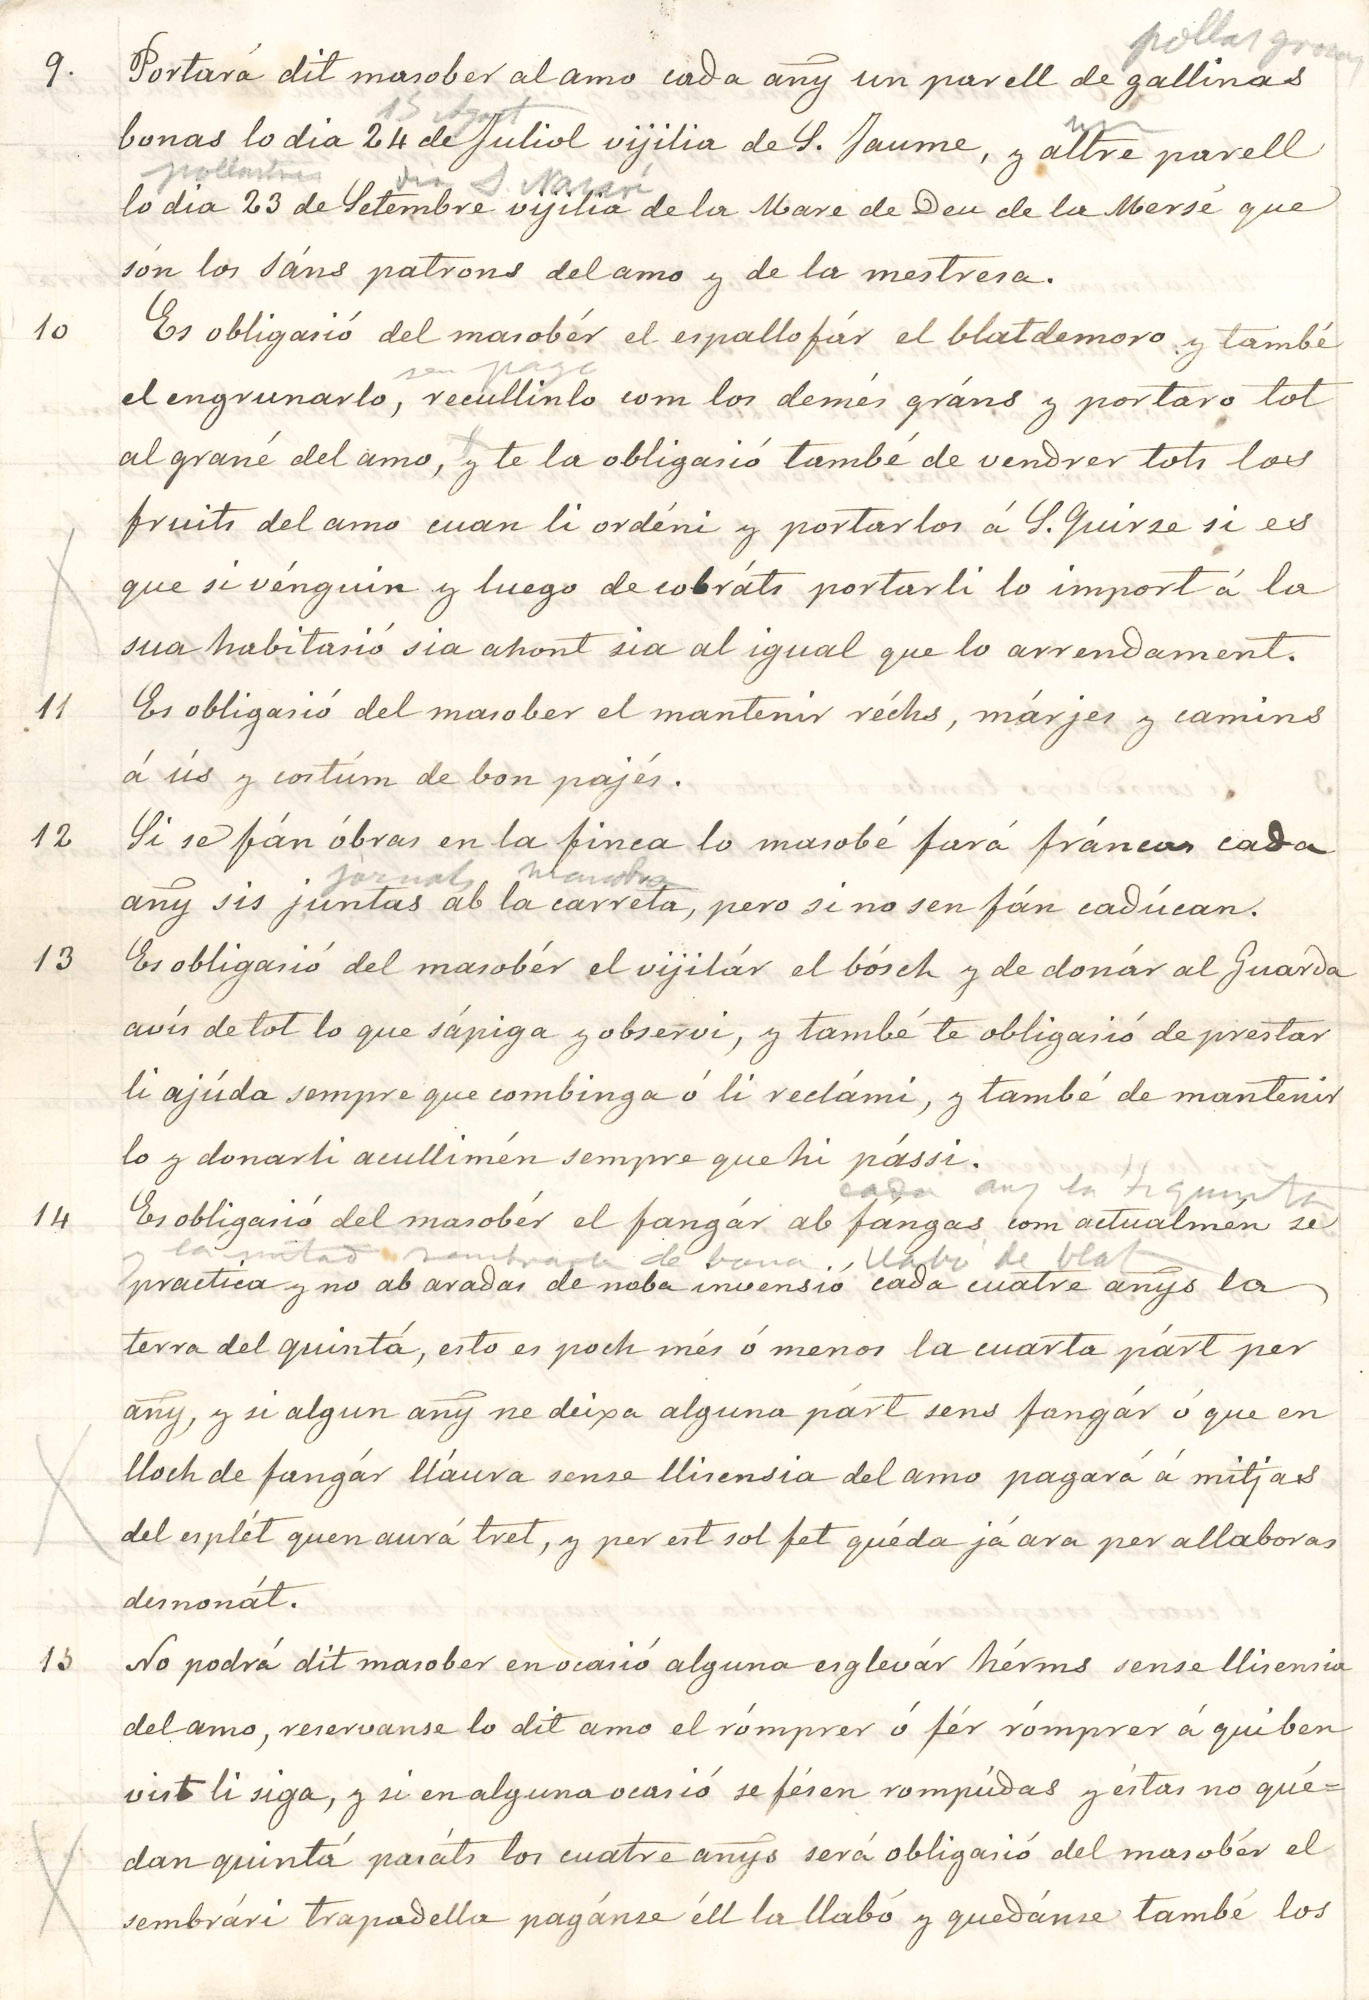 pollas grosas
9. Portará dit masober al amo cada añy un parell de gallinas
15 Agost
bonas lo dia 24 de Juliol vijilia de S. Jaume, y altre parell
un
pollastres dia S. Nasari
lo dia 23 de Setembre vijilia de la Mare de Deu de la Mersé que
són los sáns patrons del amo y de la mestresa.
10 Es obligasió del masobér el espallofár el blatdemoro y també
sen paga
el engrunarlo, recullinlo com los demés gráns y portaro tot
al grané del amo, y te la obligasió també de vendrer tots los
fruits del amo cuan li ordéni y portarlos á S. Quirze si es
que si vénguin y luego de cobráts portarli lo import á la
sua habitasió sia ahont sia al igual que lo arrendament.
11 Es obligasió del masober el mantenir réchs, márjes y camins
á ús y costúm de bon pajés.
12 Si se fán óbras en la finca lo masobé fará fráncas cada
jornals manobra
añy sis juntas ab la carreta, pero si no sen fán cadúcan.
13 Es obligasió del masobér el vijilár el bósch y de donár al Guarda
avis de tot lo que sápiga y observi, y també te obligasió de prestar
li ajúda sempre que combinga ó li reclámi, y també de mantenir
lo y donarli acullimén sempre que hi pássi.
cada any la
14 Es obligasió del masobér el fangár ab fángas com actualmén se
y la mitad sembrarla de bona llabó de blat
practica y no ab aradas de noba invensió cada cuatre añys la
terra del quintá, esto es poch més ó menos la cuarta párt per
añy, y si algun añy ne deixa alguna párt sens fangár ó que en
lloch de fangár lláura sense llisensia del amo pagará á mitjas
del esplét quen aurá tret, y per est sol fet quéda já ara per allaboras
desnonát.
15 No podrá dit masober en ocasió alguna esglevár hérms sense llisensia
del amo, reservanse lo dit amo el rómprer ó fér rómprer á qui ben
vist li siga, y si en alguna ocasió se fésen rompúdas y éstas no qué=
dan quintá pasáts los cuatre añys será obligasió del masobér el
sembrári trapadella pagánse éll la llabó y quedánse també los